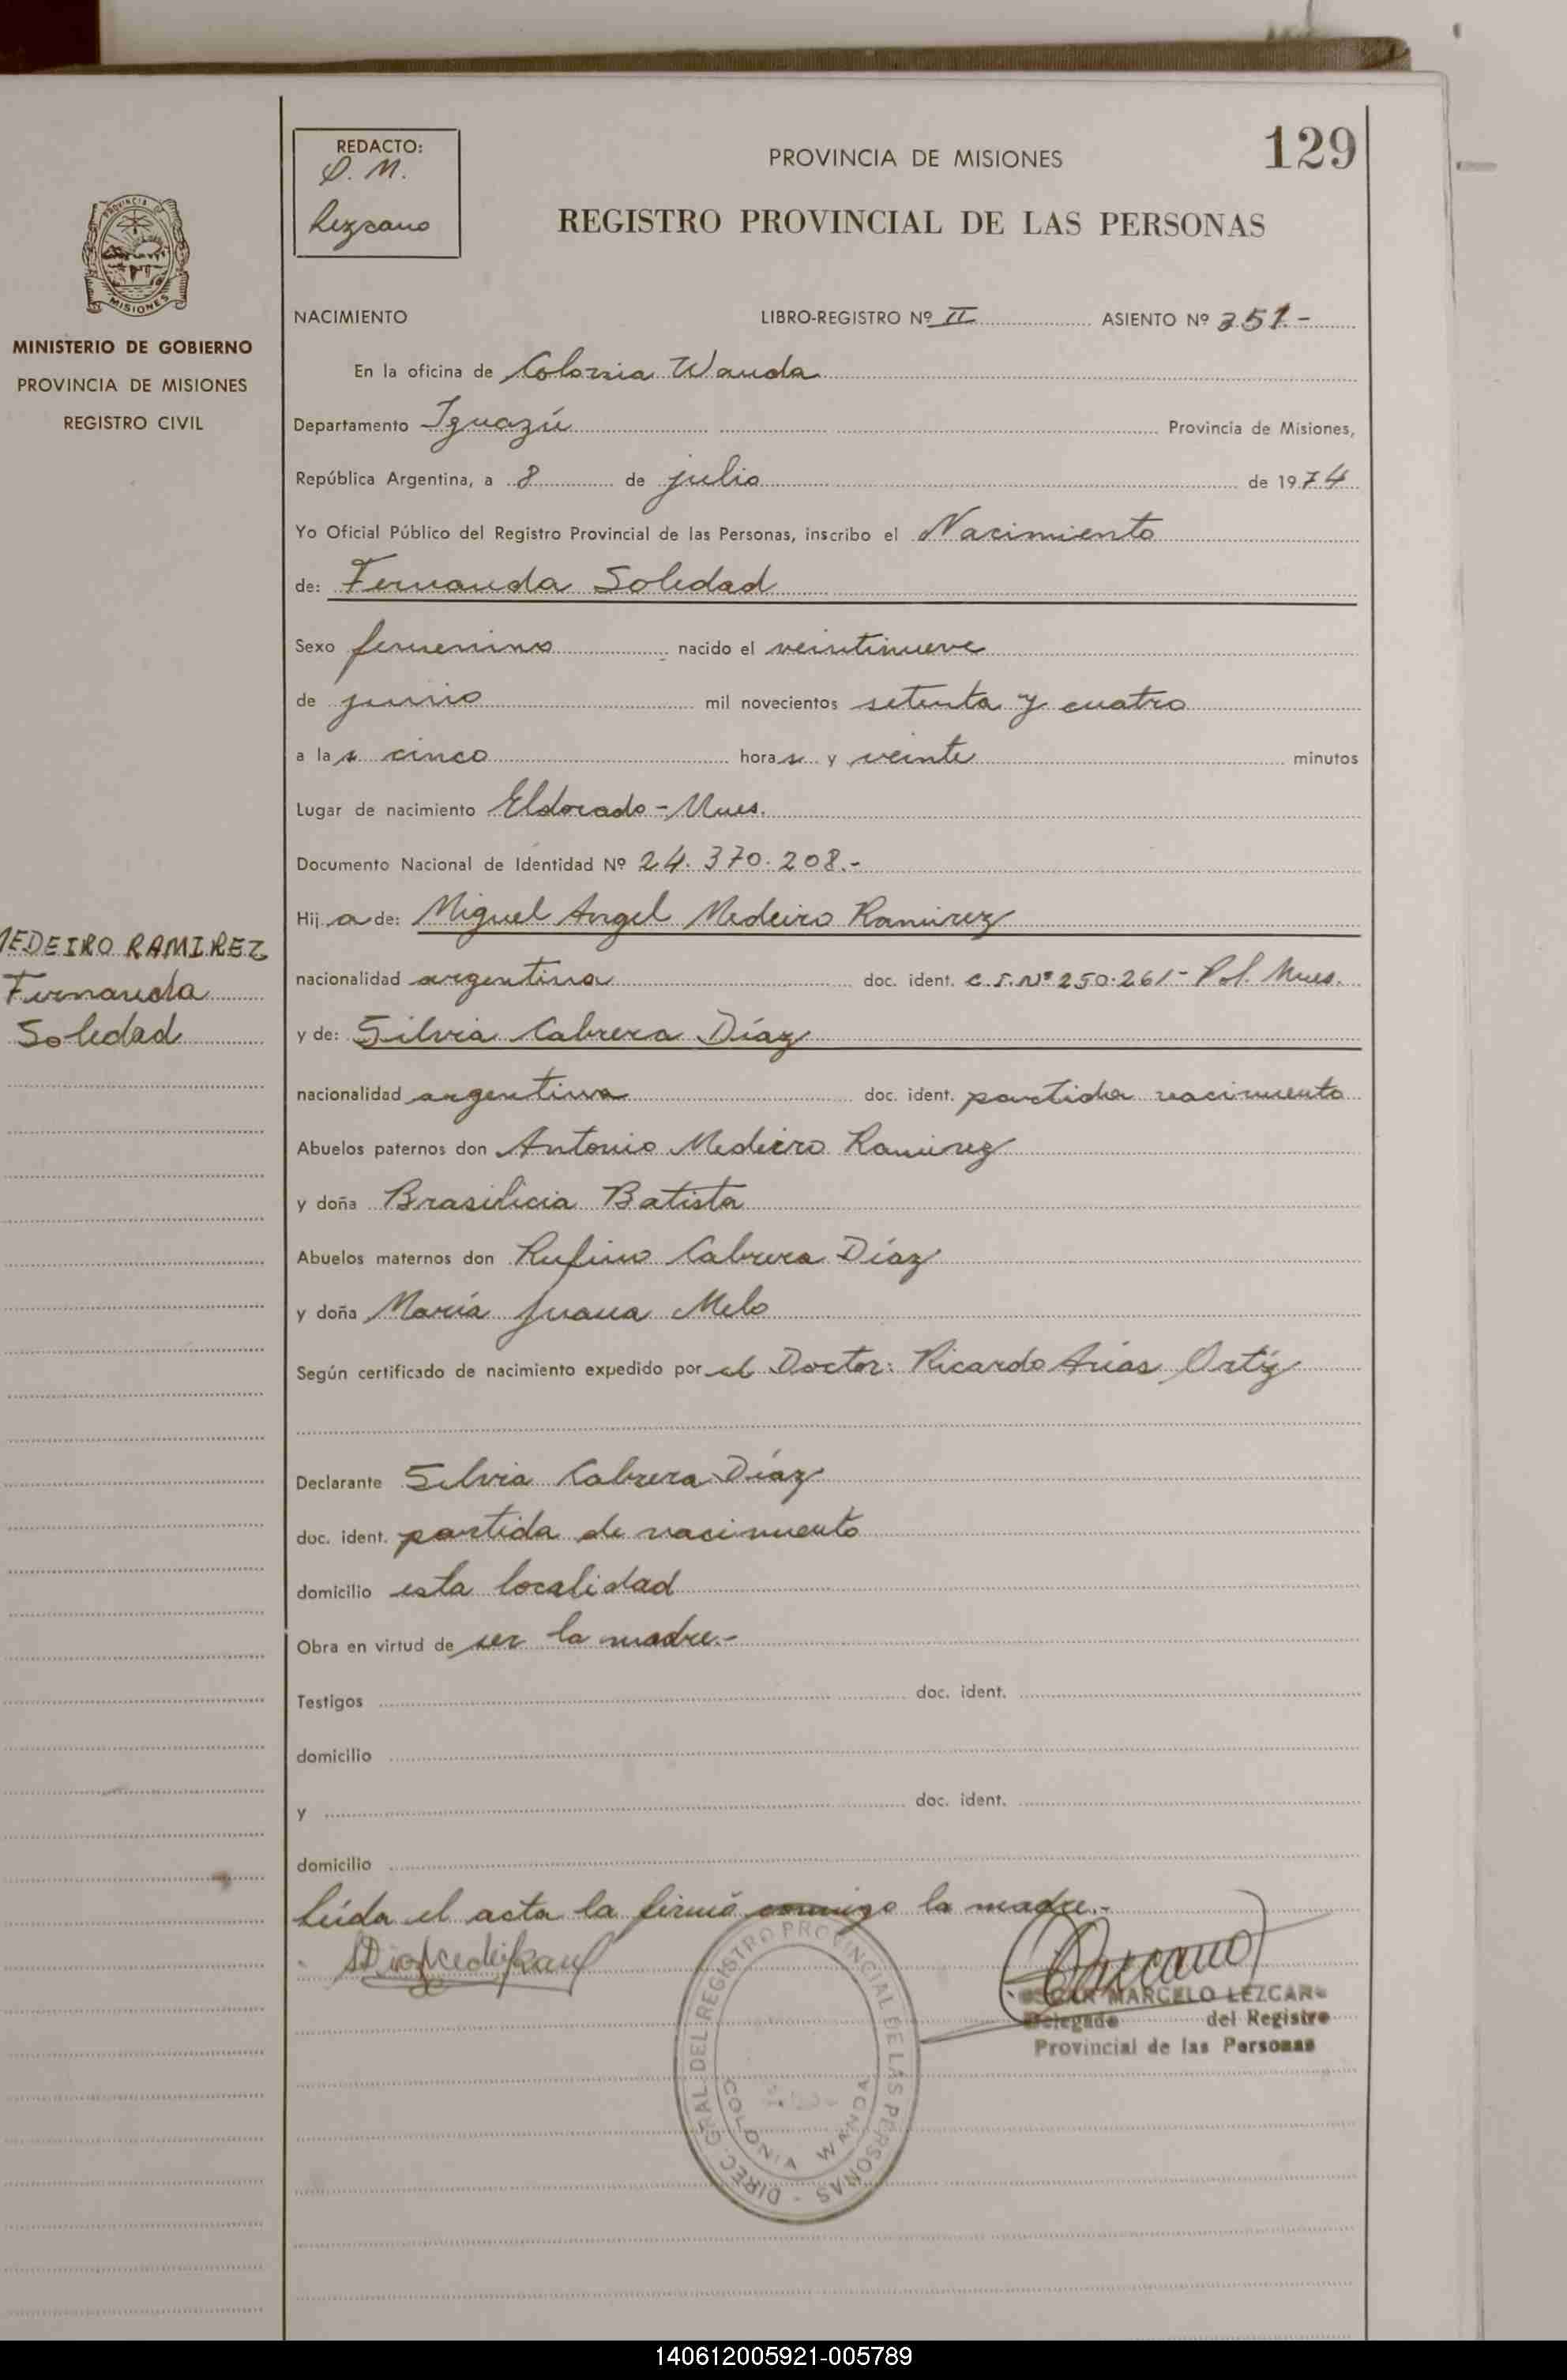 129
REDACTO:
O. M.
Lezcano
PROVINCIA DE MISIONES
REGISTRO PROVINCIAL DE LAS PERSONAS
PROVINCIA DE
MISIONES
MINISTERIO DE GOBIERNO
PROVINCIA DE MISIONES
REGISTRO CIVIL
NACIMIENTO LIBRO-REGISTRO Nº II ASIENTO Nº 351.-
En la oficina de Colonia Wanda
Departamento Iguazú Provincia de Misiones,
República Argentina, a 8 de julio de 1974
Yo Oficial Público del Registro Provincial de las Personas, inscribo el Nacimiento
de: Fernanda Soledad
Sexo femenino nacido el veintinueve
de junio mil novecientos setenta y cuatro
a las cinco horas y veinte minutos
Lugar de nacimiento Eldorado - Mnes.
Documento Nacional de Identidad Nº 24.370.208.-
Hija de: Miguel Angel Medeiro Ramirez
nacionalidad argentina doc. ident. C.I. Nº 250.261- Pol. Mnes.
y de: Silvia Cabrera Díaz
nacionalidad argentina doc. ident. partida nacimiento
Abuelos paternos don Antonio Medeiro Ramirez
y doña Brasilicia Batista
Abuelos maternos don Rufino Cabrera Díaz
y doña María Juana Melo
Según certificado de nacimiento expedido por el Doctor: Ricardo Arias Ortiz
Declarante Silvia Cabrera Díaz
doc. ident. partida de nacimiento
domicilio esta localidad
Obra en virtud de ser la madre.-
Testigos doc. ident.
domicilio
y doc. ident.
domicilio
Leída el acta la firmó conmigo la madre.-
MEDEIRO RAMIREZ
Fernanda
Soledad
OSCAR MARCELO LEZCANO
Delegado del Registro
Provincial de las Personas
DIREC. GRAL. DEL REGISTRO PROVINCIAL DE LAS PERSONAS -
COLONIA WANDA
140612005921-005789